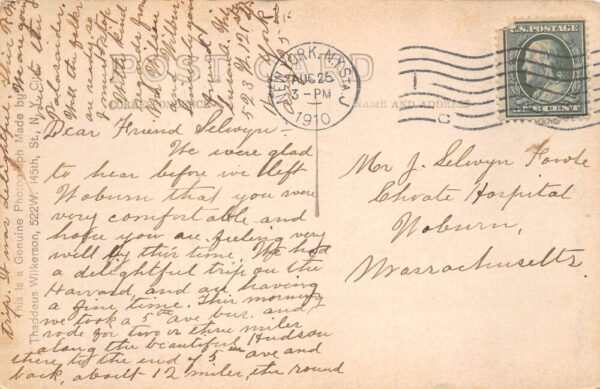 POST CARD
CORRESPONDENCE
NAME AND ADDRESS
NEW YORK, N.Y. STA. J
AUG 25
3-PM
1910
C
U.S. POSTAGE
Dear Friend Selwyn-
We were glad
to hear before we left
Woburn that you were
very comfortable and
hope you are feeling very
well by this time. We had
a delightful trip on the
Harvard and are having
a fine time. This morning
we took a 5th ave bus. and
rode for two or three miles
along the beautiful Hudson
then to the end of 5th ave and
back, about 12 miles, the round
trip. It was delightful.
are going
into the
Will write
an
I must stop
With kind
and
523 W. 121 St
New York
Mr J. Selwyn Fowle
Choate Hospital
Woburn,
Massachusetts.
This is a Genuine Photograph Made by
Thaddeus Wilkerson, 522 W. 145th, St., N. Y. City